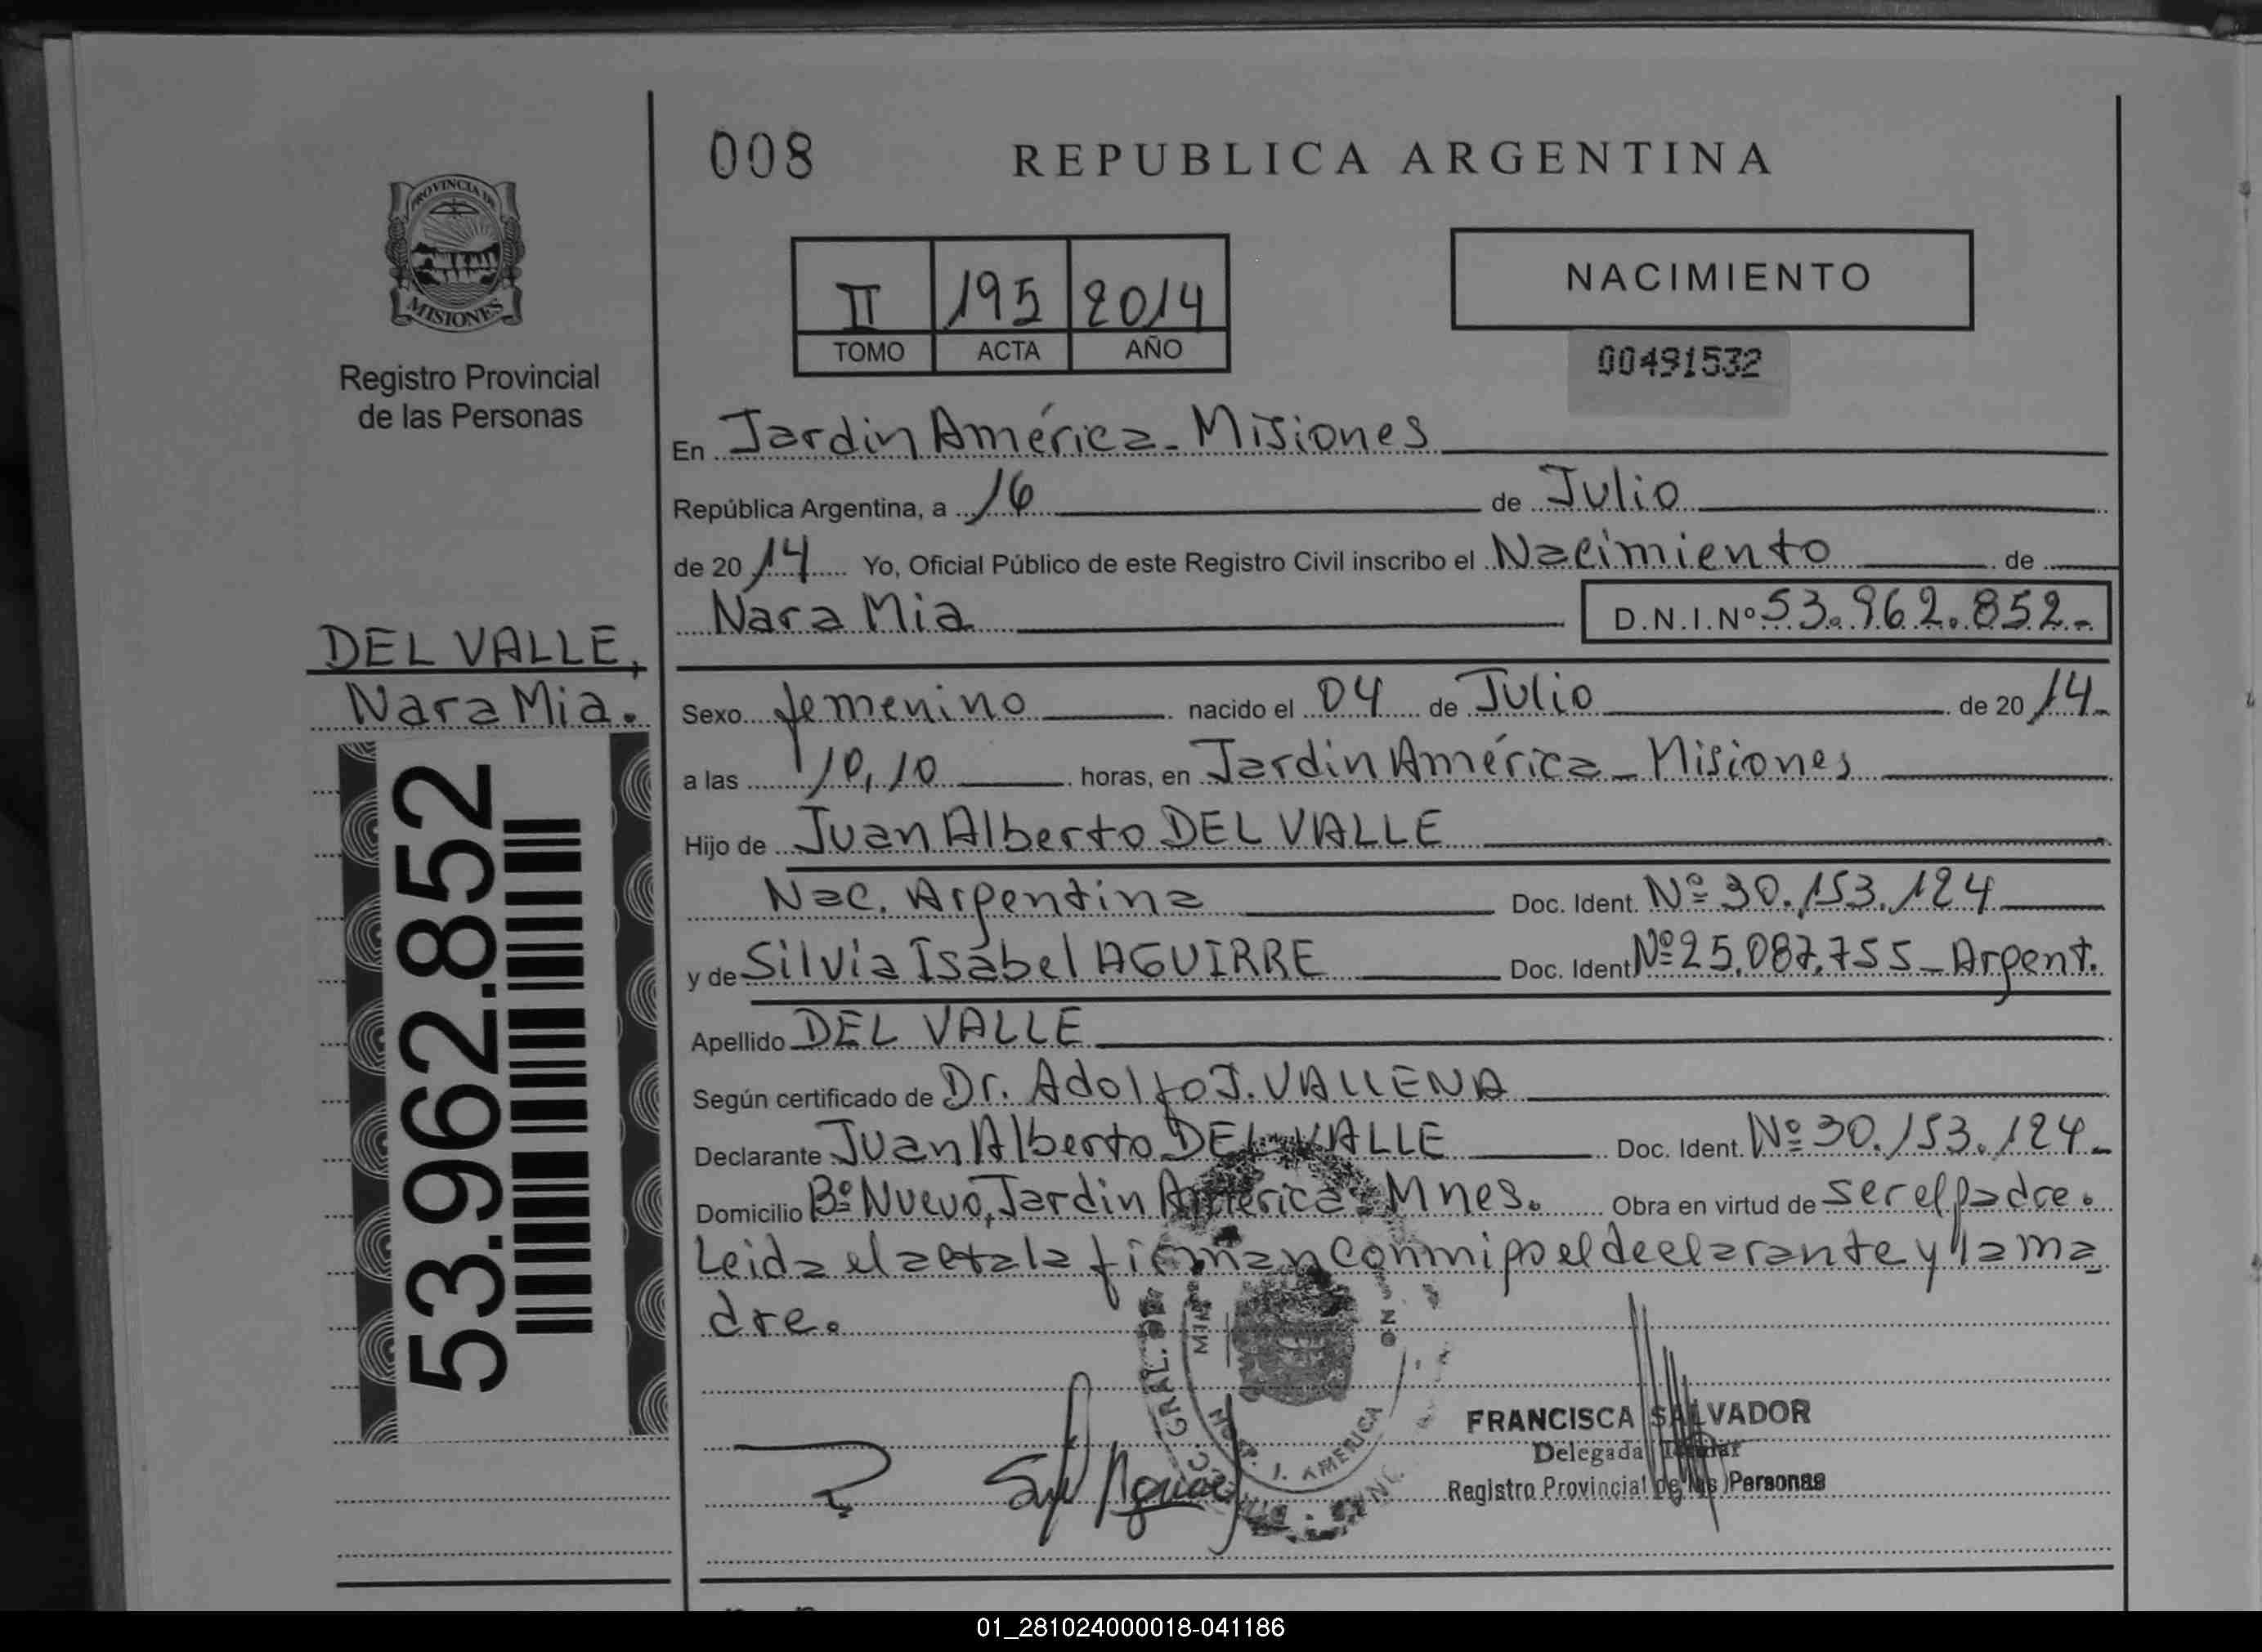 008 REPUBLICA ARGENTINA
PROVINCIA DE
MISIONES
Registro Provincial
de las Personas
II 195 2014
TOMO ACTA AÑO
NACIMIENTO
00491532
En Jardín América - Misiones
República Argentina, a 16 de Julio
de 2014 Yo, Oficial Público de este Registro Civil inscribo el Nacimiento de
Nara Mia D.N.I.Nº 53.962.852.-
DEL VALLE,
Nara Mia.
53.962.852
Sexo femenino nacido el 04 de Julio de 2014-
a las 10,10 horas, en Jardín América - Misiones
Hijo de Juan Alberto DEL VALLE
Nac. Argentina Doc. Ident. Nº 30.153.124
y de Silvia Isabel AGUIRRE Doc. Ident Nº 25.087.755 - Argent.
Apellido DEL VALLE
Según certificado de Dr. Adolfo J. VALLENA
Declarante Juan Alberto DEL VALLE Doc. Ident. Nº 30.153.124-
Domicilio Bº Nuevo, Jardín América Mnes. Obra en virtud de ser el padre.
Leida el acta la firman conmigo el declarante y la ma
dre.
GRAL. DE
J. AMERICA
FRANCISCA SALVADOR
Delegada Titular
Registro Provincial de las Personas
01_281024000018-041186